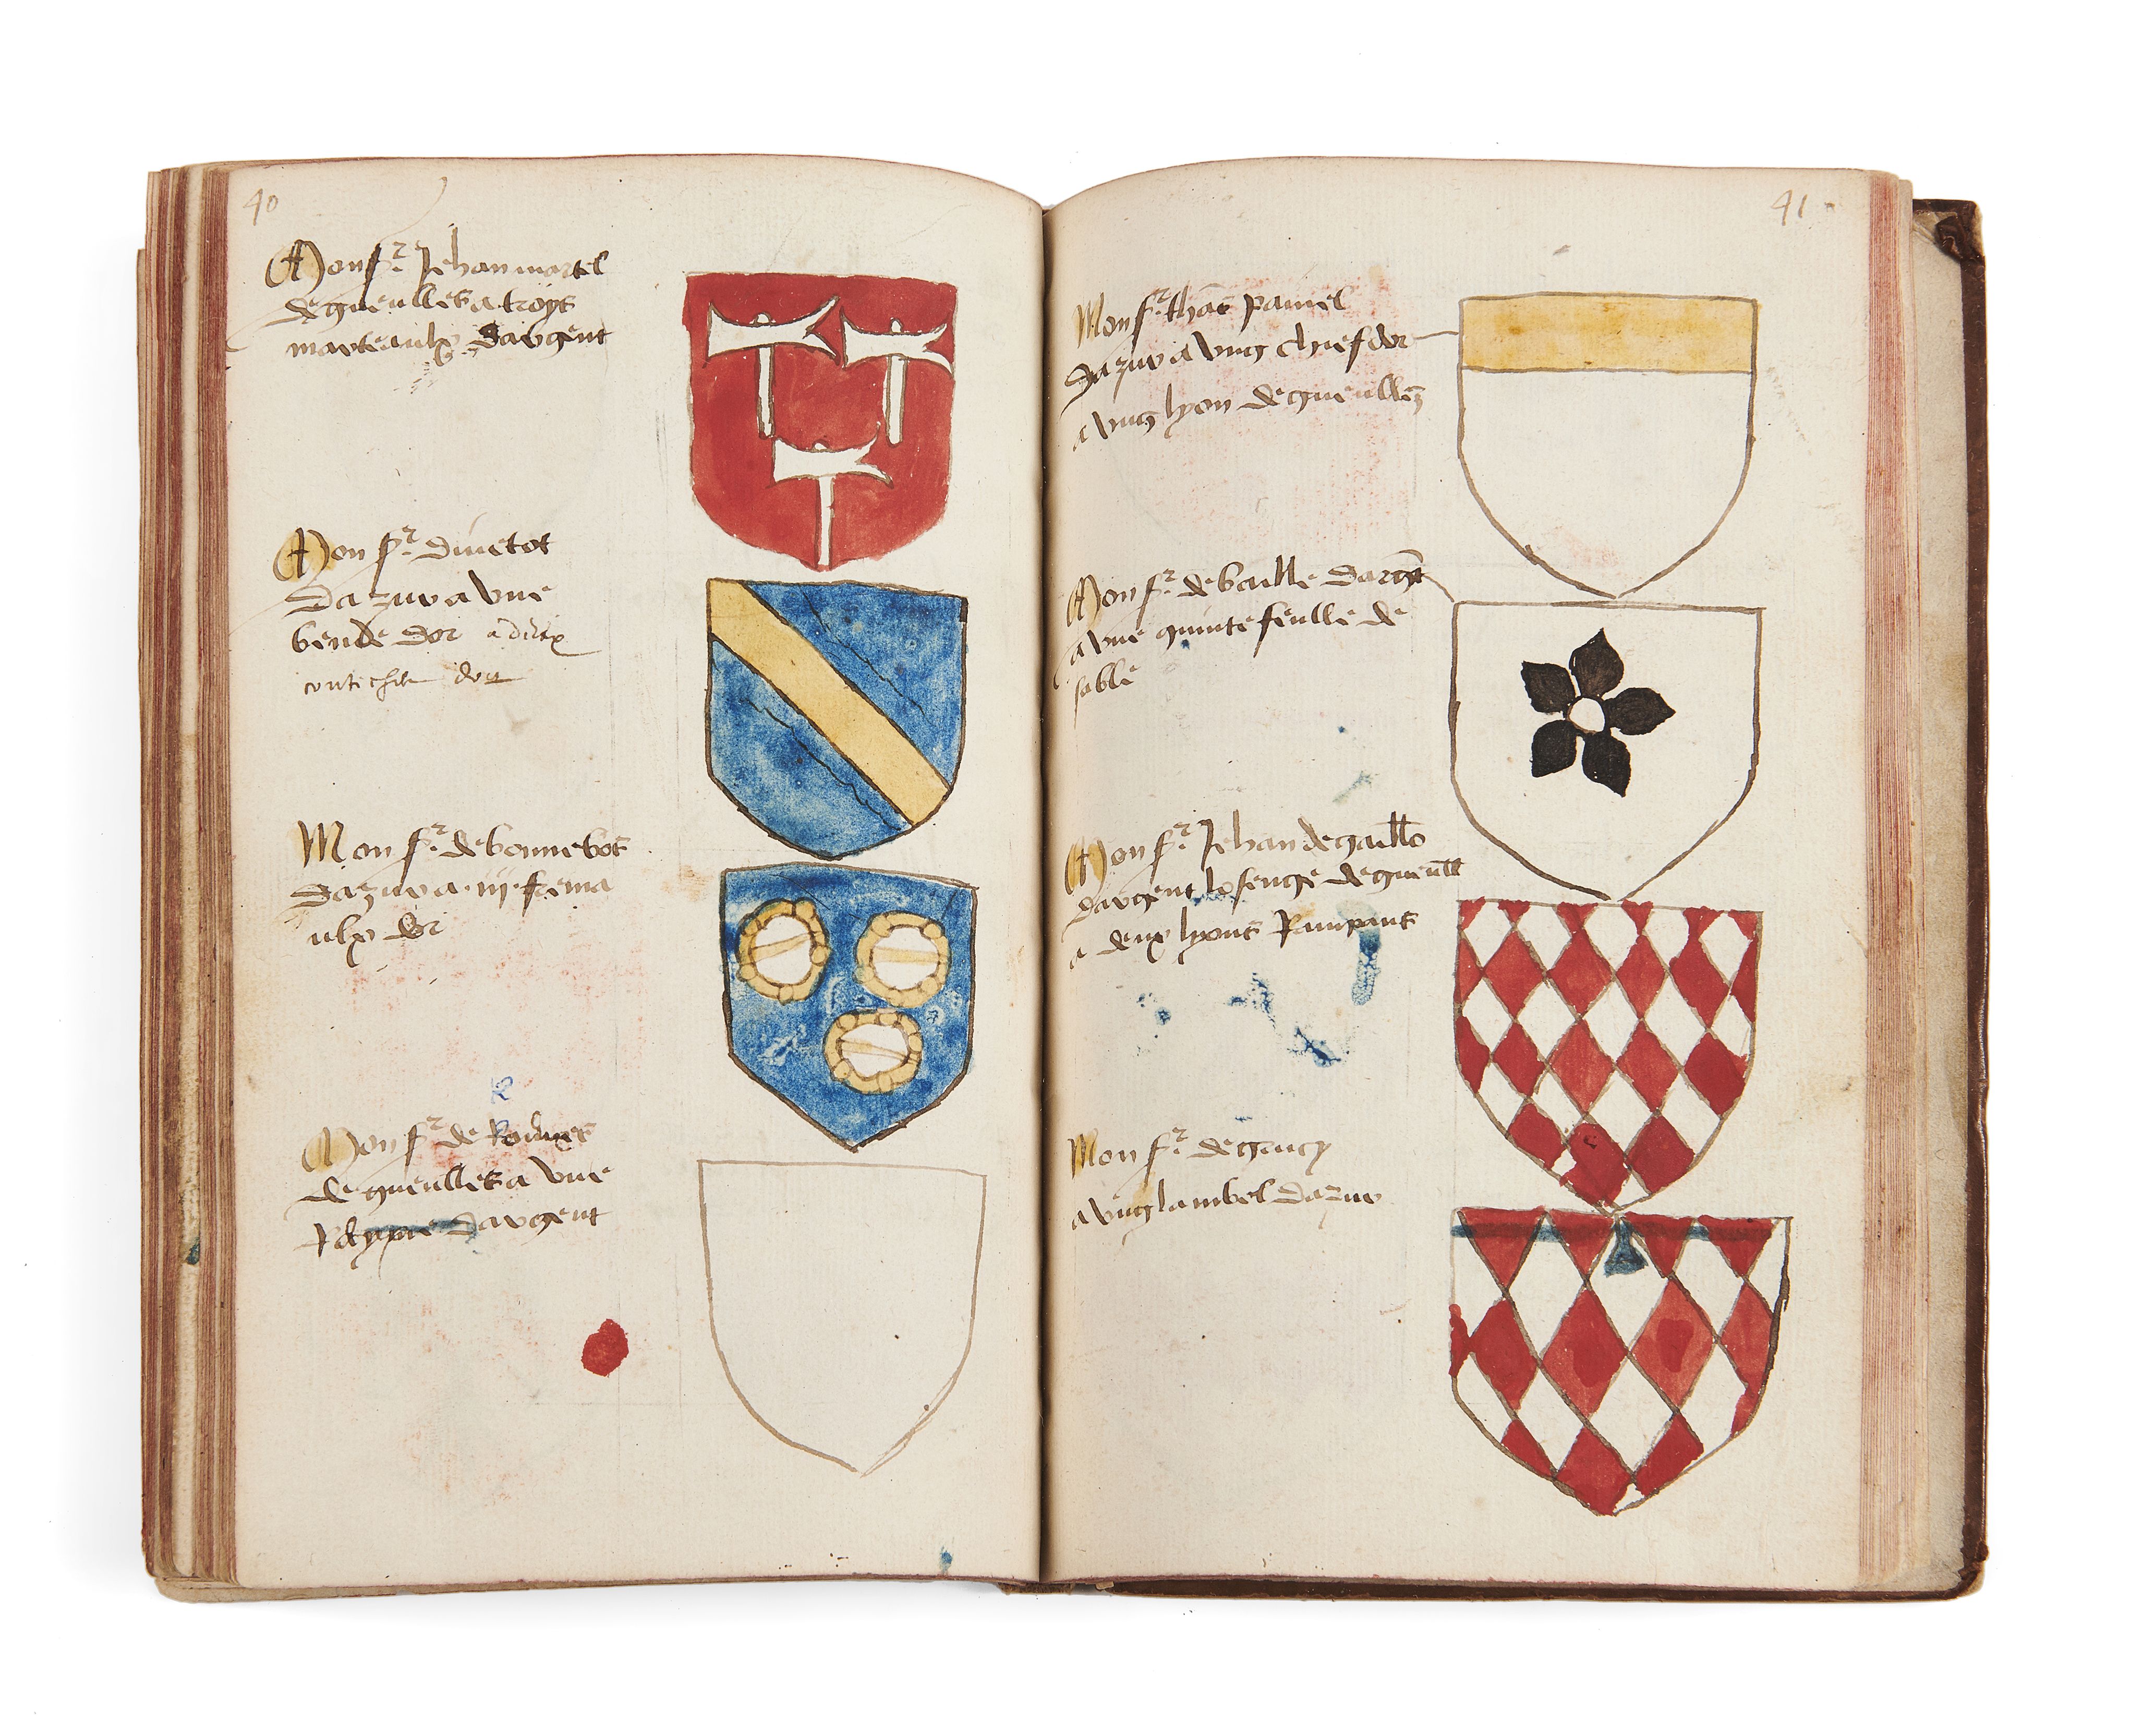 40
Monsr Jehan martel
de gueulles a troys
marteaulx dargent
Monsr divetot
dazur a une
bende dor a deux
cotiches dor
Monsr de bonnebos
dazur a .iij. frema
ulx dor
Monsr de
de gueulles a une
dargent
41
Monsr thas painel
dazur a ung chief dor
a ung lyon de gueulles
Monsr de baille dargt
a une quinte feulle de
sable
Monsr Jehan de gaillo
dargent losenge de gueull
a deux lyons Rampans
Monsr de
a ung lambel dazur